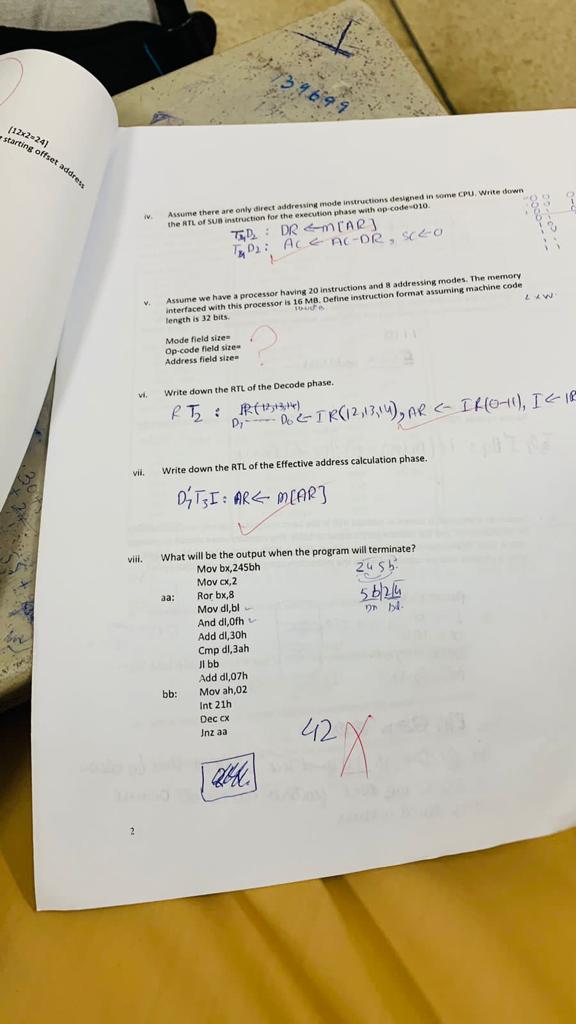 139699
[12x2=24]
starting offset address
iv. Assume there are only direct addressing mode instructions designed in some CPU. Write down
the RTL of SUB instruction for the execution phase with op-code=010.
D2 : DR ← M[AR]
D2 : AC ← AC-DR, SC←0
v. Assume we have a processor having 20 instructions and 8 addressing modes. The memory
interfaced with this processor is 16 MB. Define instruction format assuming machine code
length is 32 bits.
Mode field size=
Op-code field size= ?
Address field size=
vi. Write down the RTL of the Decode phase.
IR(12,13,14)
R T2 : D7 ---- D0 ← IR(12,13,14), AR ← IR(0-11), I ← IR
vii. Write down the RTL of the Effective address calculation phase.
D7'T3I : AR ← M[AR]
viii. What will be the output when the program will terminate?
Mov bx,245bh
245b
Mov cx,2
aa: Ror bx,8
5b|24
Mov dl,bl
And dl,0fh
Add dl,30h
Cmp dl,3ah
Jl bb
Add dl,07h
bb: Mov ah,02
Int 21h
Dec cx
Jnz aa
42
2